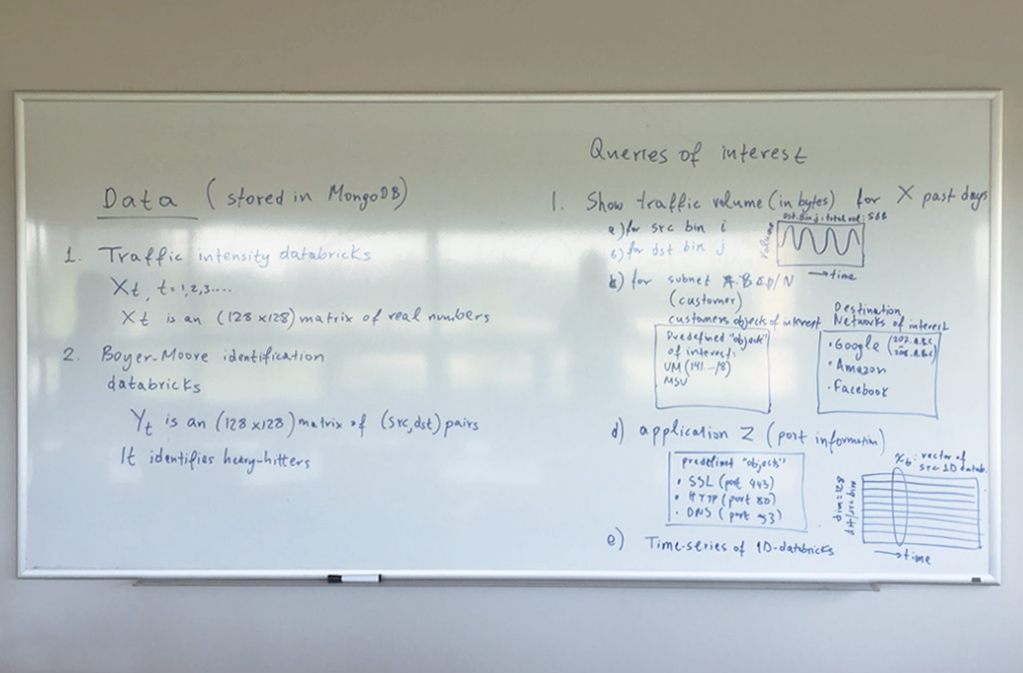 Data (stored in MongoDB)
1. Traffic intensity databricks
Xt, t=1,2,3....
Xt is an (128x128) matrix of real numbers
2. Boyer-Moore identification
databricks
Yt is an (128x128) matrix of (src,dst) pairs
It identifies heavy-hitters
Queries of interest
1. Show traffic volume (in bytes) for X past days
a) for src bin i
for dst bin j
dst. bin j: total vol:
volume
→time
for subnet A.B.C.D/N
(customer)
customers objects of interest
Predefined "objects"
of interest:
UM (141.-/18)
MSU
Destination
Networks of interest
• Google
• Amazon
• Facebook
d) application Z (port information)
predefined "objects"
• SSL (port 443)
• HTTP (port 80)
• DNS (port 53)
e) Time-series of 1D-databricks
: vector of
src 1D datab.
→time